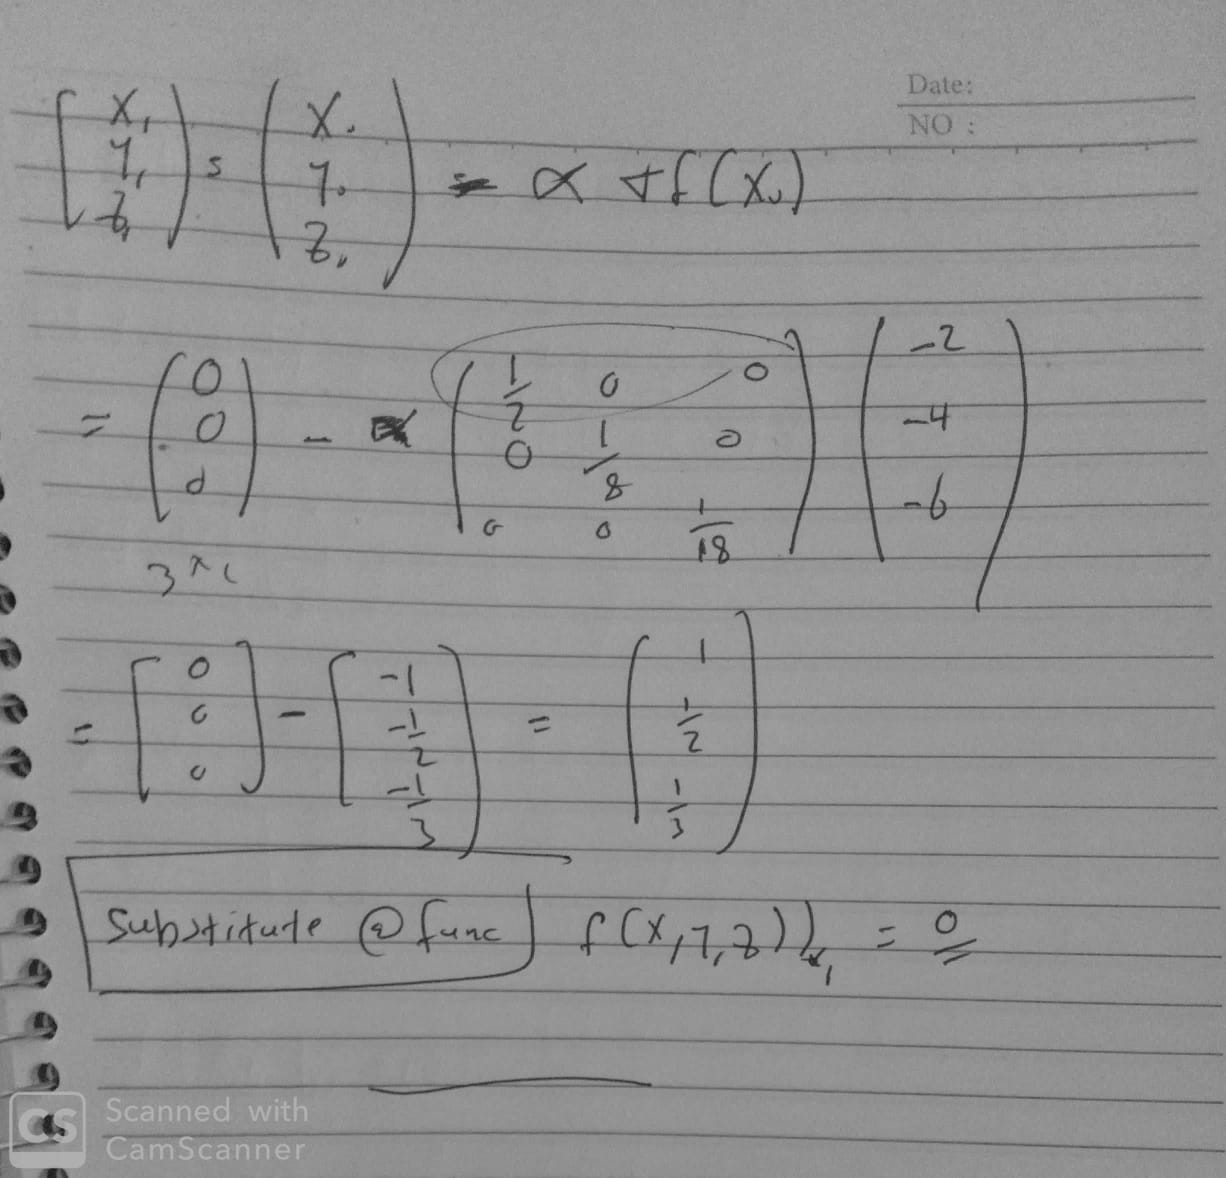 Date:
NO :
[x₁ y₁ z₁) s (x₀ y₀ z₀) = α ∇f(x₀)
= (0 0 0) - (1/2 0 0 0 1/8 0 0 0 1/18) (-2 -4 -6)
3×1
= [0 0 0] - [-1 -1/2 -1/3] = (1 1/2 1/3)
Substitute @ func f(x,y,z))x₁ = 0
CS Scanned with
CamScanner